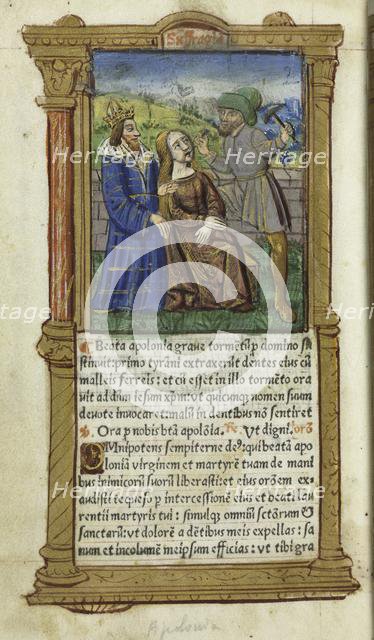 Suffragia
Beata apolonia grave tormētū p domino su
stinuit: primo tyrāni extraxerūt dentes eius cū
malleis ferreis: et cū esset in illo tormēto ora
uit ad dūm iesum xp̄m: vt quicunq nomen suum
deuote inuocaret malū in dentibus nō sentiret
℣. Ora p nobis btā apolōia. ℟. Vt digni. orō
OMnipotens sempiterne de⁹: qui beatā apo
loniā virginem et martyrē tuam de mani
bus inimicorū suorū liberasti: et eius orōem ex
audisti te queso p intercessionē eius et beati lau
rentii martyris tui: simulq omniū sctōrum et
sanctarū: vt dolorē a dētibus meis expellas: sa
num et incolumē meipsum efficias: vt tibi gra
Apolonia
Heritage
Heritage
Heritage
Heritage
Heritage
Images
Images
Images